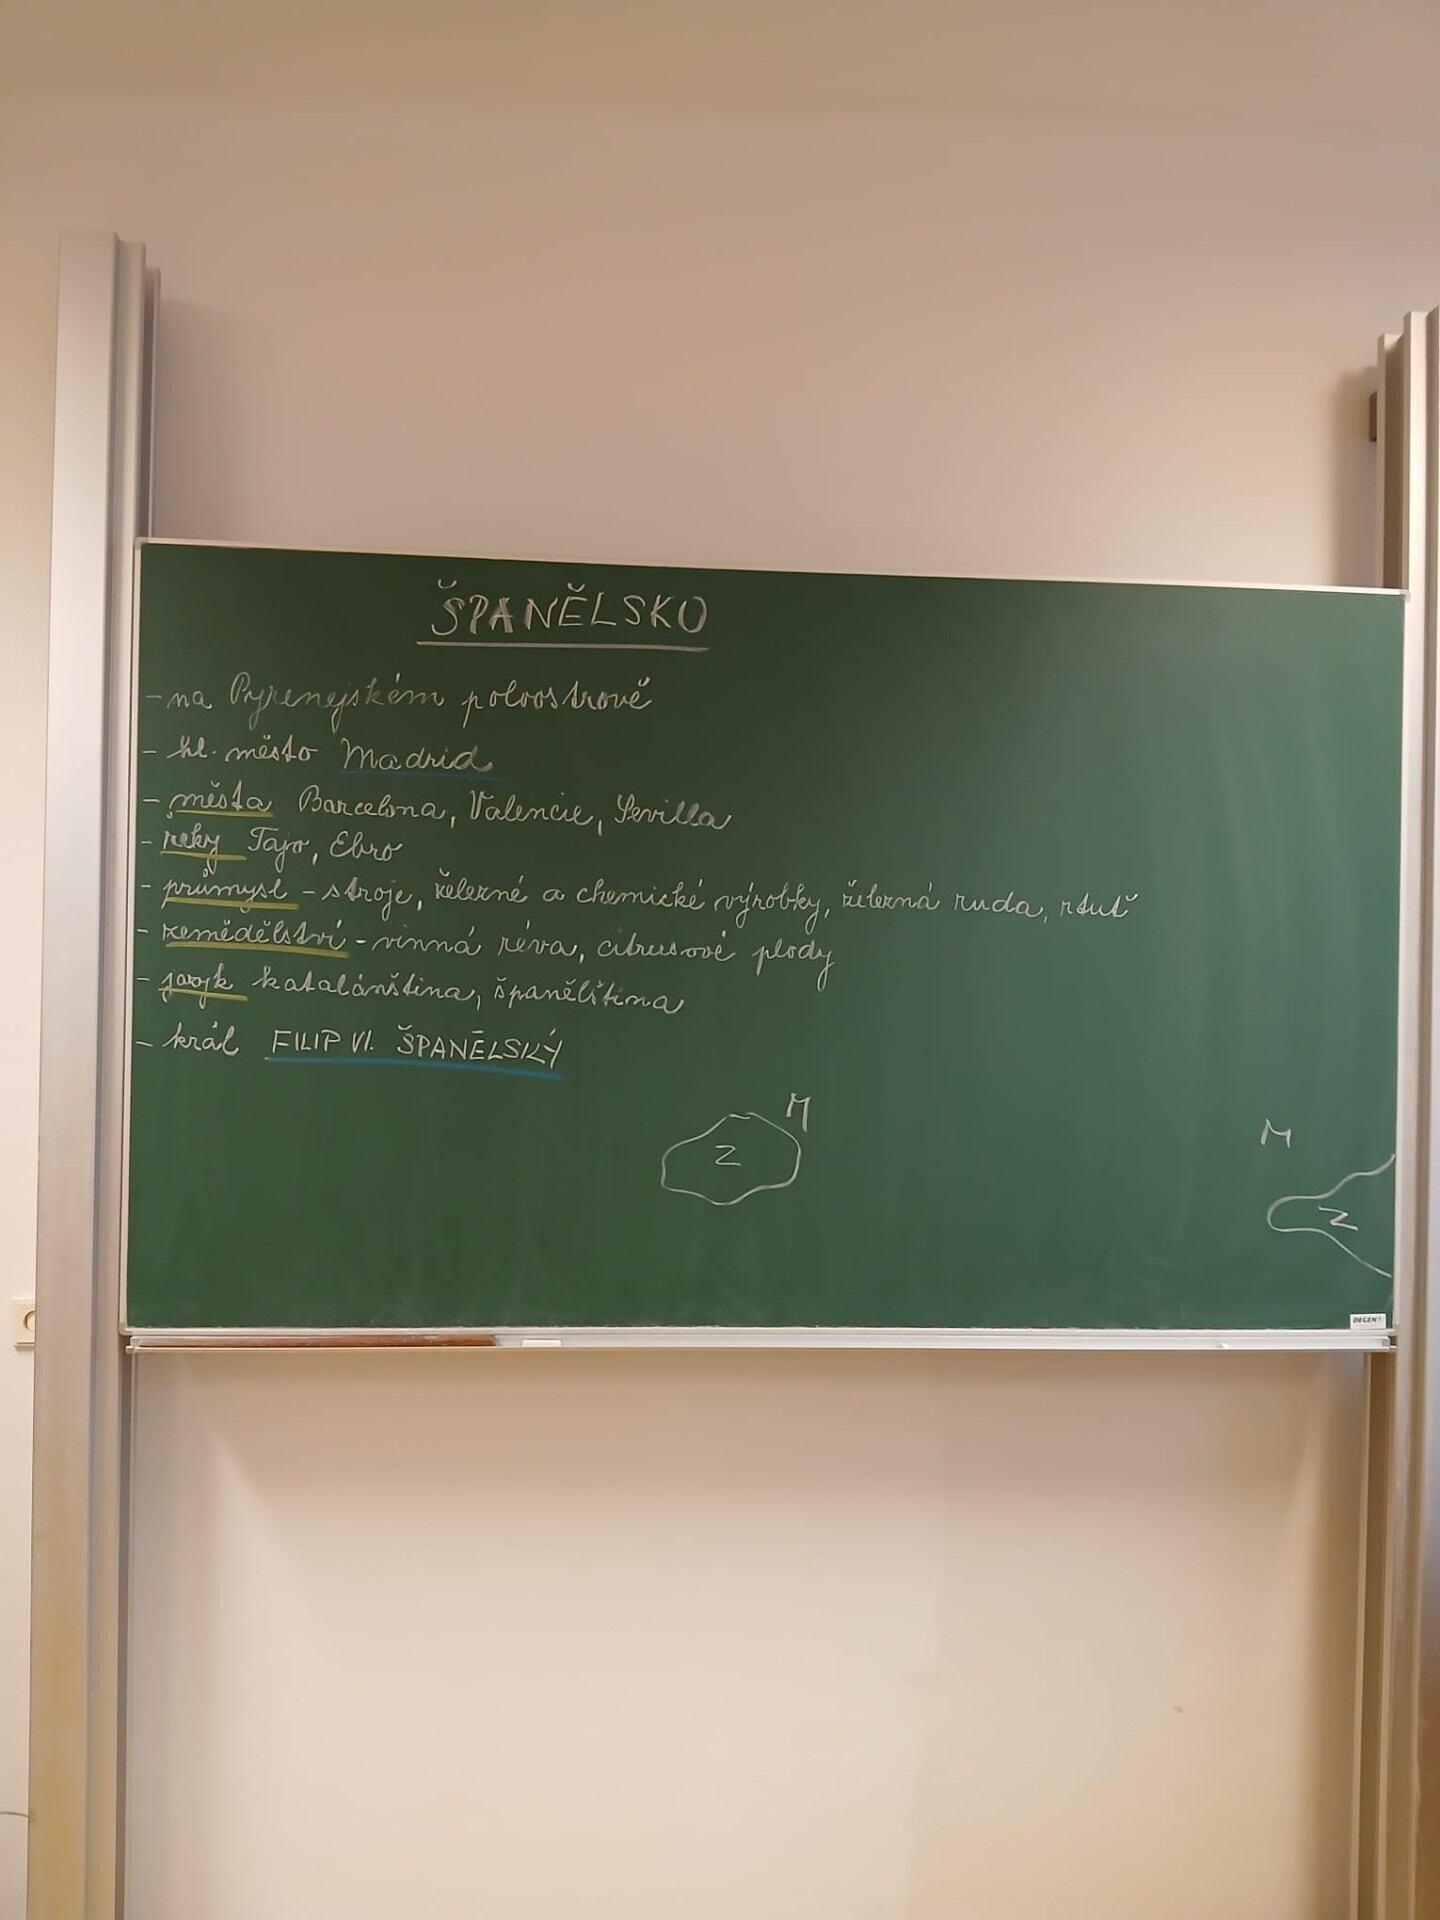 ŠPANĚLSKO
- na Pyrenejském poloostrově
- hl. město Madrid
- města Barcelona, Valencie, Sevilla
- řeky Tajo, Ebro
- průmysl - stroje, železné a chemické výrobky, železná ruda, rtuť
- zemědělství - vinná réva, citrusové plody
- jazyk katalánština, španělština
- král FILIP VI. ŠPANĚLSKÝ
M
Z
M
Z
DEGEN